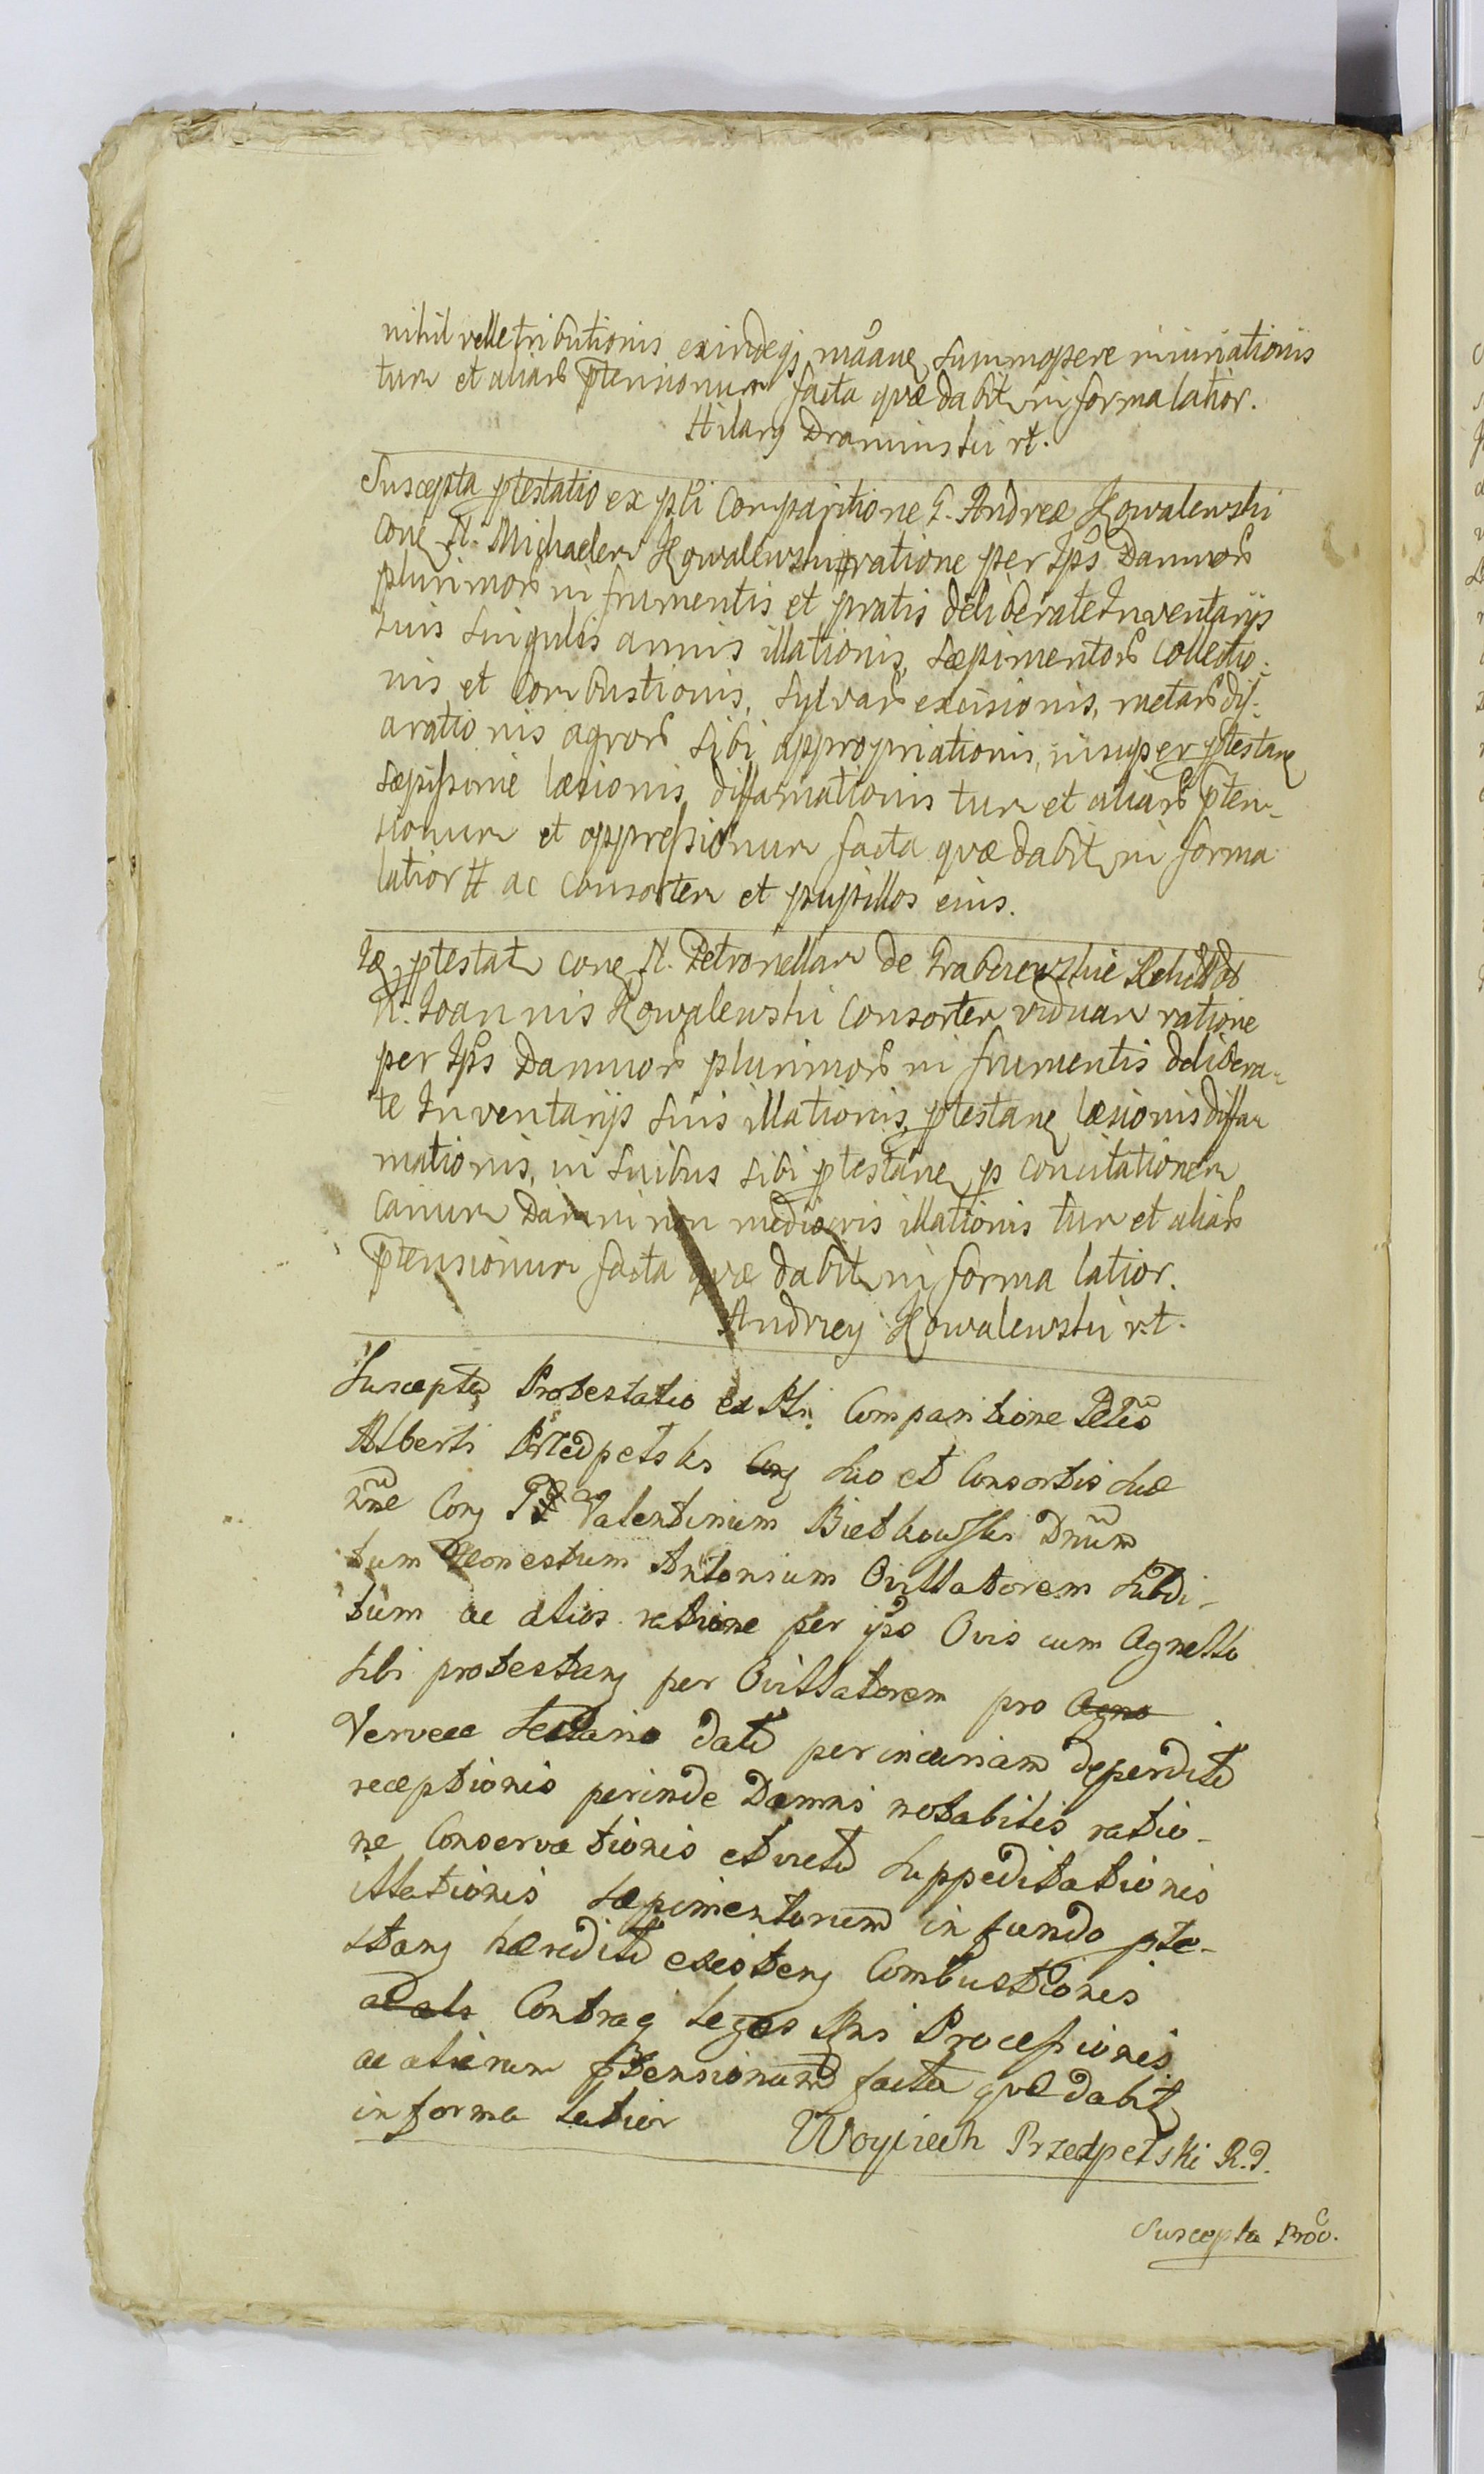 nihil velle tributionis exindeq; summopere iniuriationis
tum et aliarũ ptensionum facta quæ dabit in forma latior.
Hilary Draminski rt.
Suscepta ptestatio ex pli Comparitione G. Andreæ Kowalewski
con N. Michaelem Kowalewski # ratione per Ips Damnorũ
plurimorũ in frumentis et pratis deliberate Inventarijs
suis singulis annis illationis, sæpimentorũ Collectio-
nis et Combustionis, sylvarũ excisionis, metarũ dis-
arationis agrorũ sibi appropriationis, insuper ptestan
sæpissime læsionis, diffamationis tum et aliarũ pten-
sionum et oppressionum facta quæ dabit in forma
latior # ac Consortem et pupillos eius.
ptestat con N. Petronellam de
N. Joannis Kowalewski Consortem viduam ratione
per Ips Damnorũ plurimorũ in frumentis delibera-
te Inventarijs suis illationis, ptestan læsionis diffa-
mationis, in suibus sibi ptestane p concitationem
canum Damni non mediocris illationis tum et aliarũ
ptensionum facta quæ dabit in forma latior.
Andrzey Kowalewski r.t.
Suscepta Protestatio ex Pli Comparitione
Alberti Przedpelski Con suo et Consortis suæ
nne Con Valentinum Bietkowski
tum Honestum Antonium Ovillatorem subdi-
tum ac alios ratione per ips Ovis cum Agnello
sibi protestan per Ovillatorem pro Agno
Vervece dati per incuriam deperditi
receptionis perinde Damni notabilis ratio-
ne Conservationis et suppeditationis
illationis sæpimentorum in fundo pte-
stan hæredit existen Combustionis
Contraq leges Pns Processionis
ac aliarum ptensionum facta quæ dabit
in forma latior Woyciech Przedpelski R.T.
Suscepta Proo.